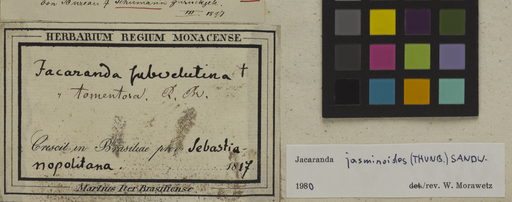 von Bureau & Schumann zurückgek.
III 1897
HERBARIUM REGIUM MONACENSE.
Jacaranda subvelutina †
tomentosa. R. Br.
Crescit in Brasiliae prv. Sebastia-
nopolitana. 1817
Martius Iter Brasiliense
Jacaranda jasminoides (THUNB.) SANDW.
1980 det./rev. W. Morawetz